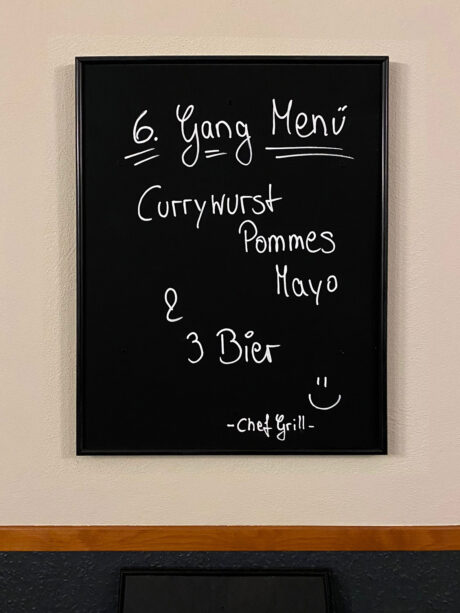 6. Gang Menü
Currywurst
Pommes
Mayo
&
3 Bier
-Chef Grill-